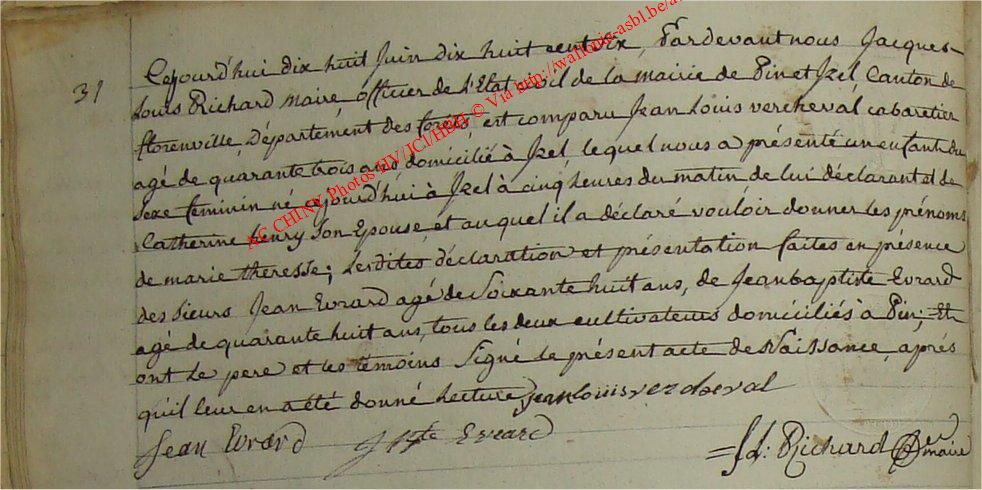 31
Cejourd'hui dix huit Juin dix huit cent dix, Pardevant nous Jacques-
Louis Richard maire officier de l'Etat civil de la mairie de Pin et Izel Canton de
florenville, Département des forêts, est comparu Jean Louis vercheval cabaretier
agé de quarante trois ans domicilié à Izel, lequel nous a présenté un enfant du
sexe feminin né cejourd'hui à Izel à cinq heures du matin de lui déclarant et de
Catherine henry son Epouse et auquel il a déclaré vouloir donner les prénoms
de marie theresse; lesdites déclaration et présentation faites en présence
des sieurs Jean Evrard agé de soixante huit ans, de Jean baptiste Evrard
agé de quarante huit ans, tous les deux cultivateurs domiciliés à Pin; Et
ont le pere et les temoins signé le présent acte de Naissance, aprés
qu'il leur en a été donné lecture, jean louis vercheval
Jean Evrard J Bte Evrard
J L: Richard maire
AC CHINY Photos HV/JCJ/HBH © Via http://wallonia-asbl.be/